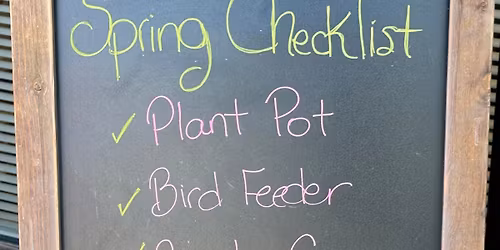 Spring Checklist
✓ Plant Pot
✓ Bird Feeder